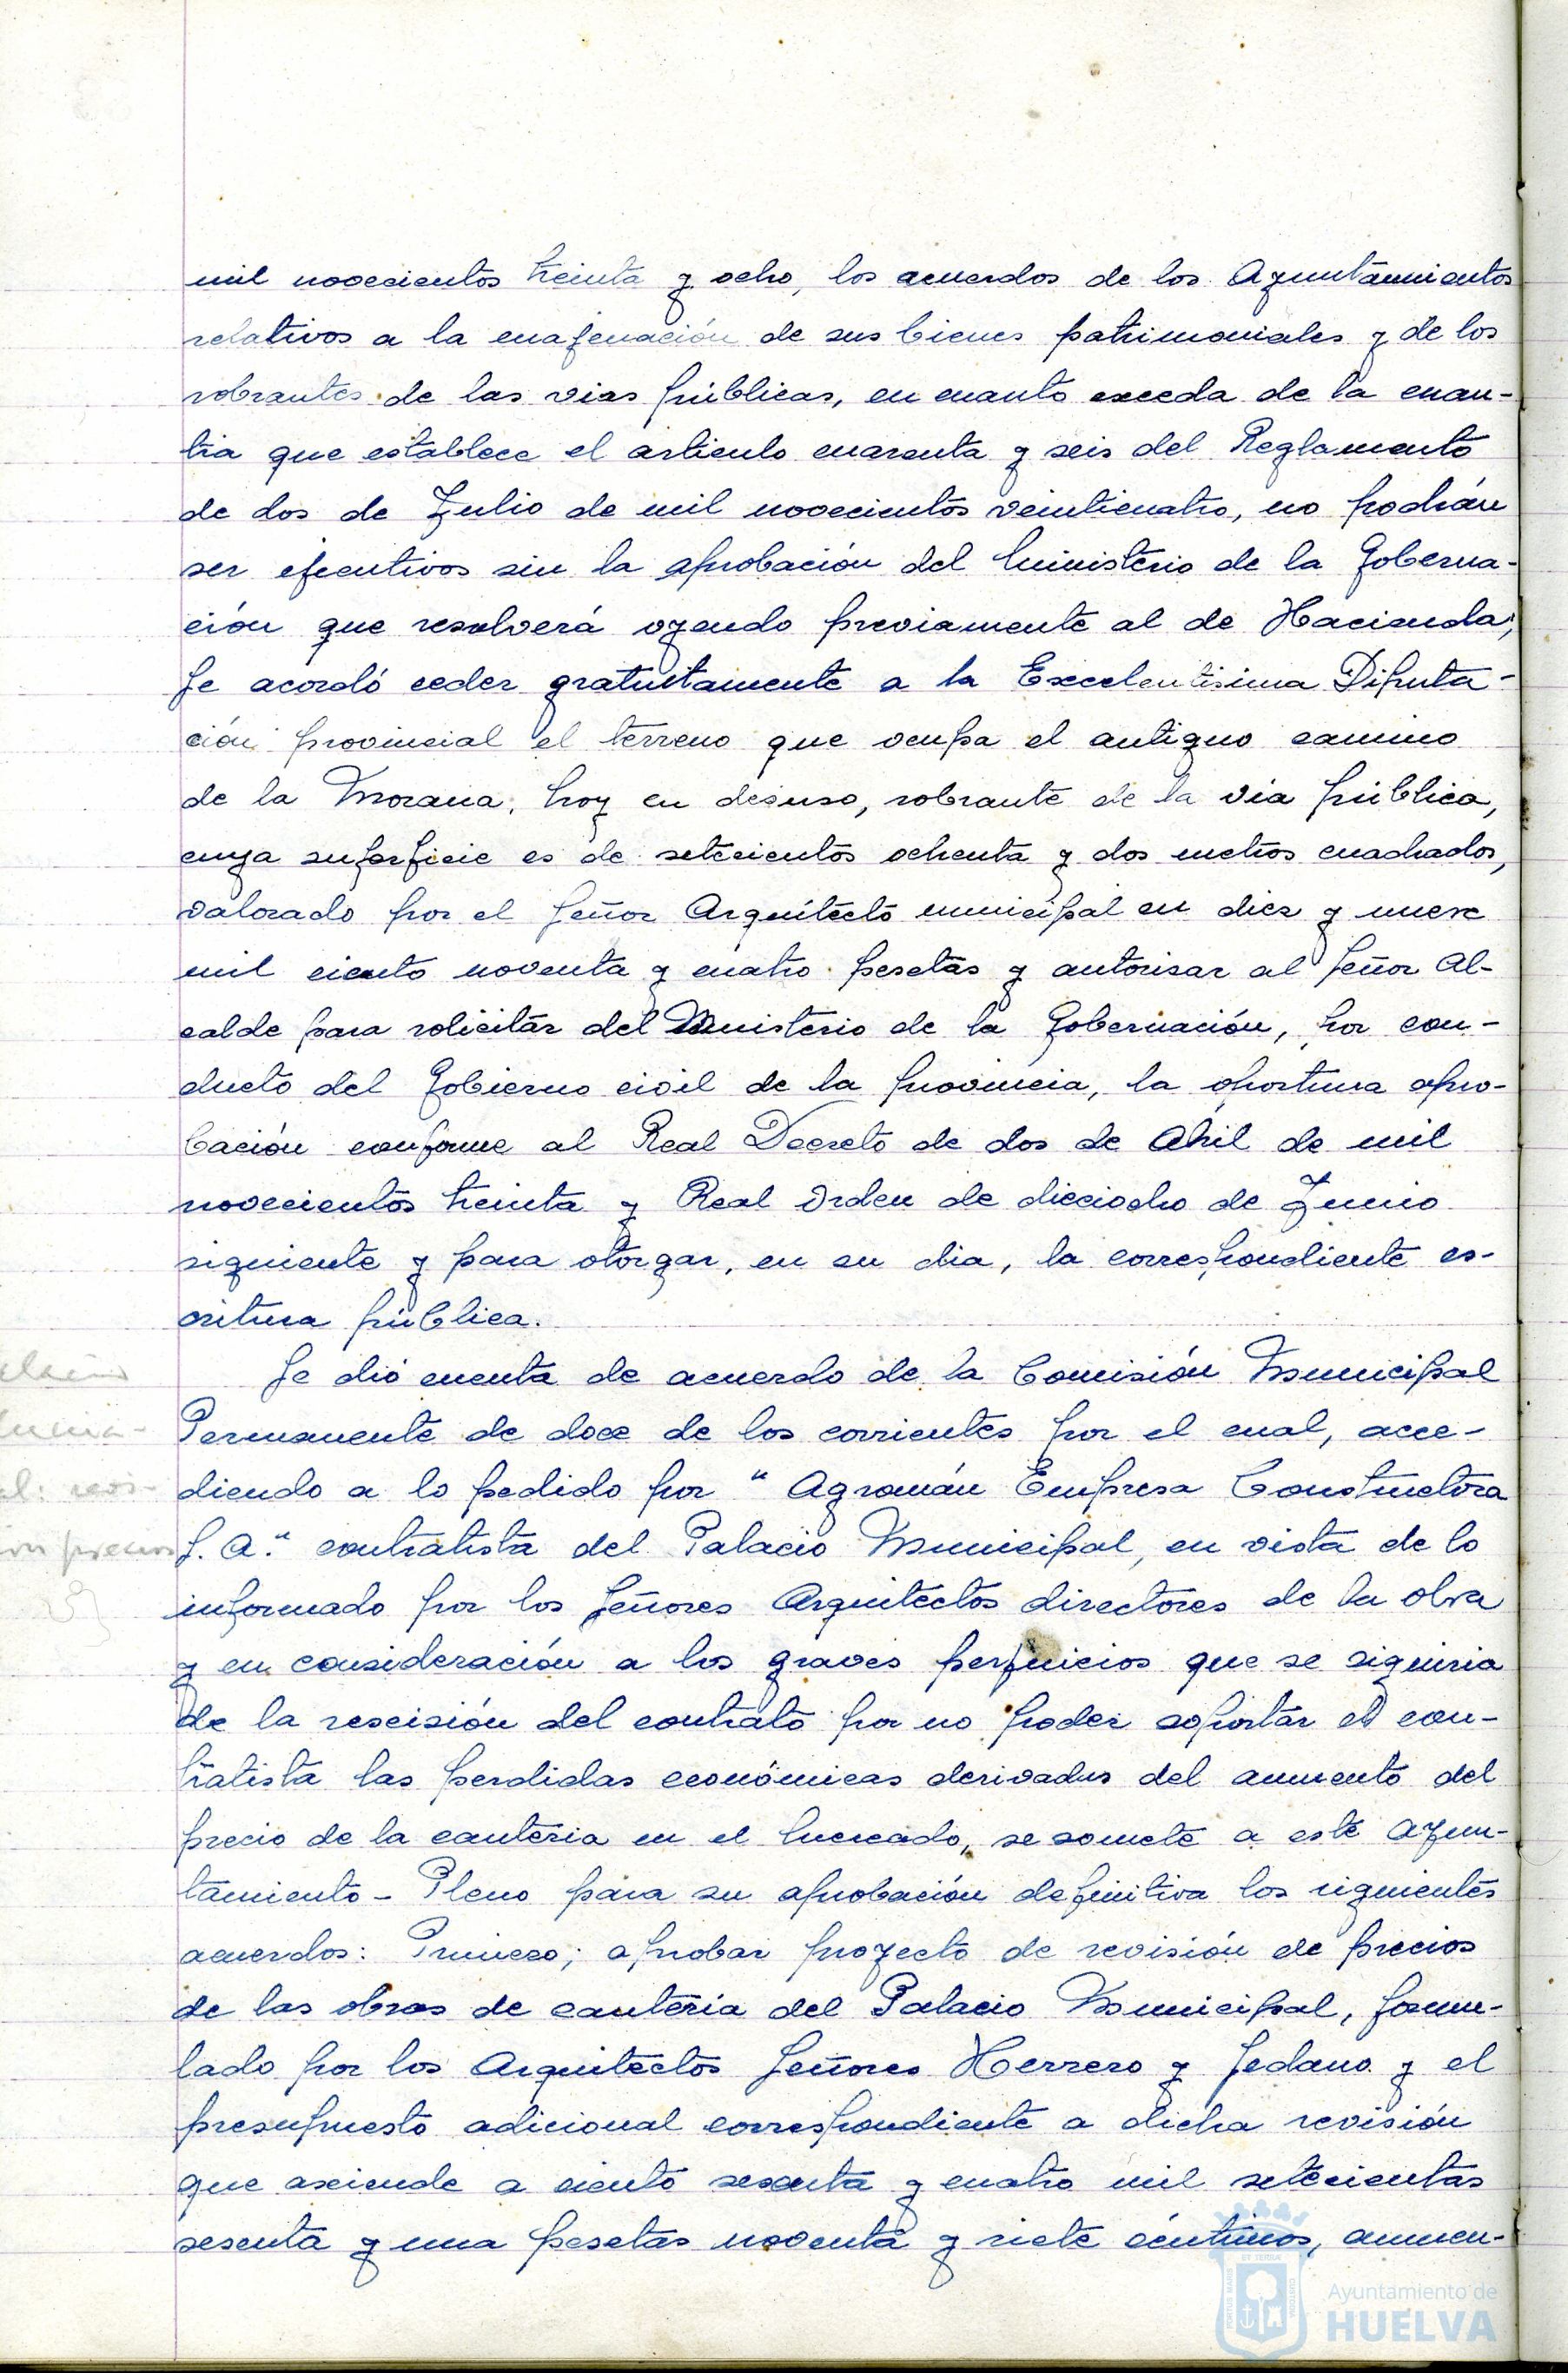 mil novecientos treinta y ocho, los acuerdos de los Ayuntamientos
relativos a la enajenación de sus bienes patrimoniales y de los
sobrantes de las vias públicas, en cuanto exceda de la cuan-
tia que establece el articulo cuarenta y seis del Reglamento
de dos de Julio de mil novecientos veinticuatro, no podrán
ser ejecutivos sin la aprobación del Ministerio de la Goberna-
ción que resolverá oyendo previamente al de Hacienda;
Se acordó ceder gratuitamente a la Excelentisima Diputa-
ción provincial el terreno que ocupa el antiguo camino
de la Morana, hoy en desuso, sobrante de la via pública,
cuya superficie es de setecientos ochenta y dos metros cuadrados,
valorado por el Señor Arquitecto municipal en diez y nueve
mil ciento noventa y cuatro pesetas y autorisar al Señor Al-
calde para solicitar del Ministerio de la Gobernación, por con-
ducto del Gobierno civil de la provincia, la oportuna apro-
bación conforme al Real Decreto de dos de Abril de mil
novecientos treinta y Real Orden de dieciocho de Junio
siguiente y para otorgar, en su dia, la correspondiente es-
critura pública.
Se dió cuenta de acuerdo de la Comisión Municipal
Permanente de doce de los corrientes por el cual, acce-
diendo a lo pedido por "Agromán Empresa Constructora
S. A." contratista del Palacio Municipal, en vista de lo
informado por los Señores Arquitectos directores de la obra
y en consideración a los graves perjuicios que se siguiria
de la rescisión del contrato por no poder soportar el con-
tratista las perdidas económicas derivadas del aumento del
precio de la canteria en el mercado, se somete a este Ayun-
tamiento - Pleno para su aprobación definitiva los siguientes
acuerdos: Primero; aprobar proyecto de revisión de precios
de las obras de canteria del Palacio Municipal, formu-
lado por los Arquitectos Señores Herrero y Sedano y el
presupuesto adicional correspondiente a dicha revisión
que asciende a ciento sesenta y cuatro mil setecientas
sesenta y una pesetas noventa y siete céntimos, aumen-
al: revis-
ión precios
Ayuntamiento de
HUELVA